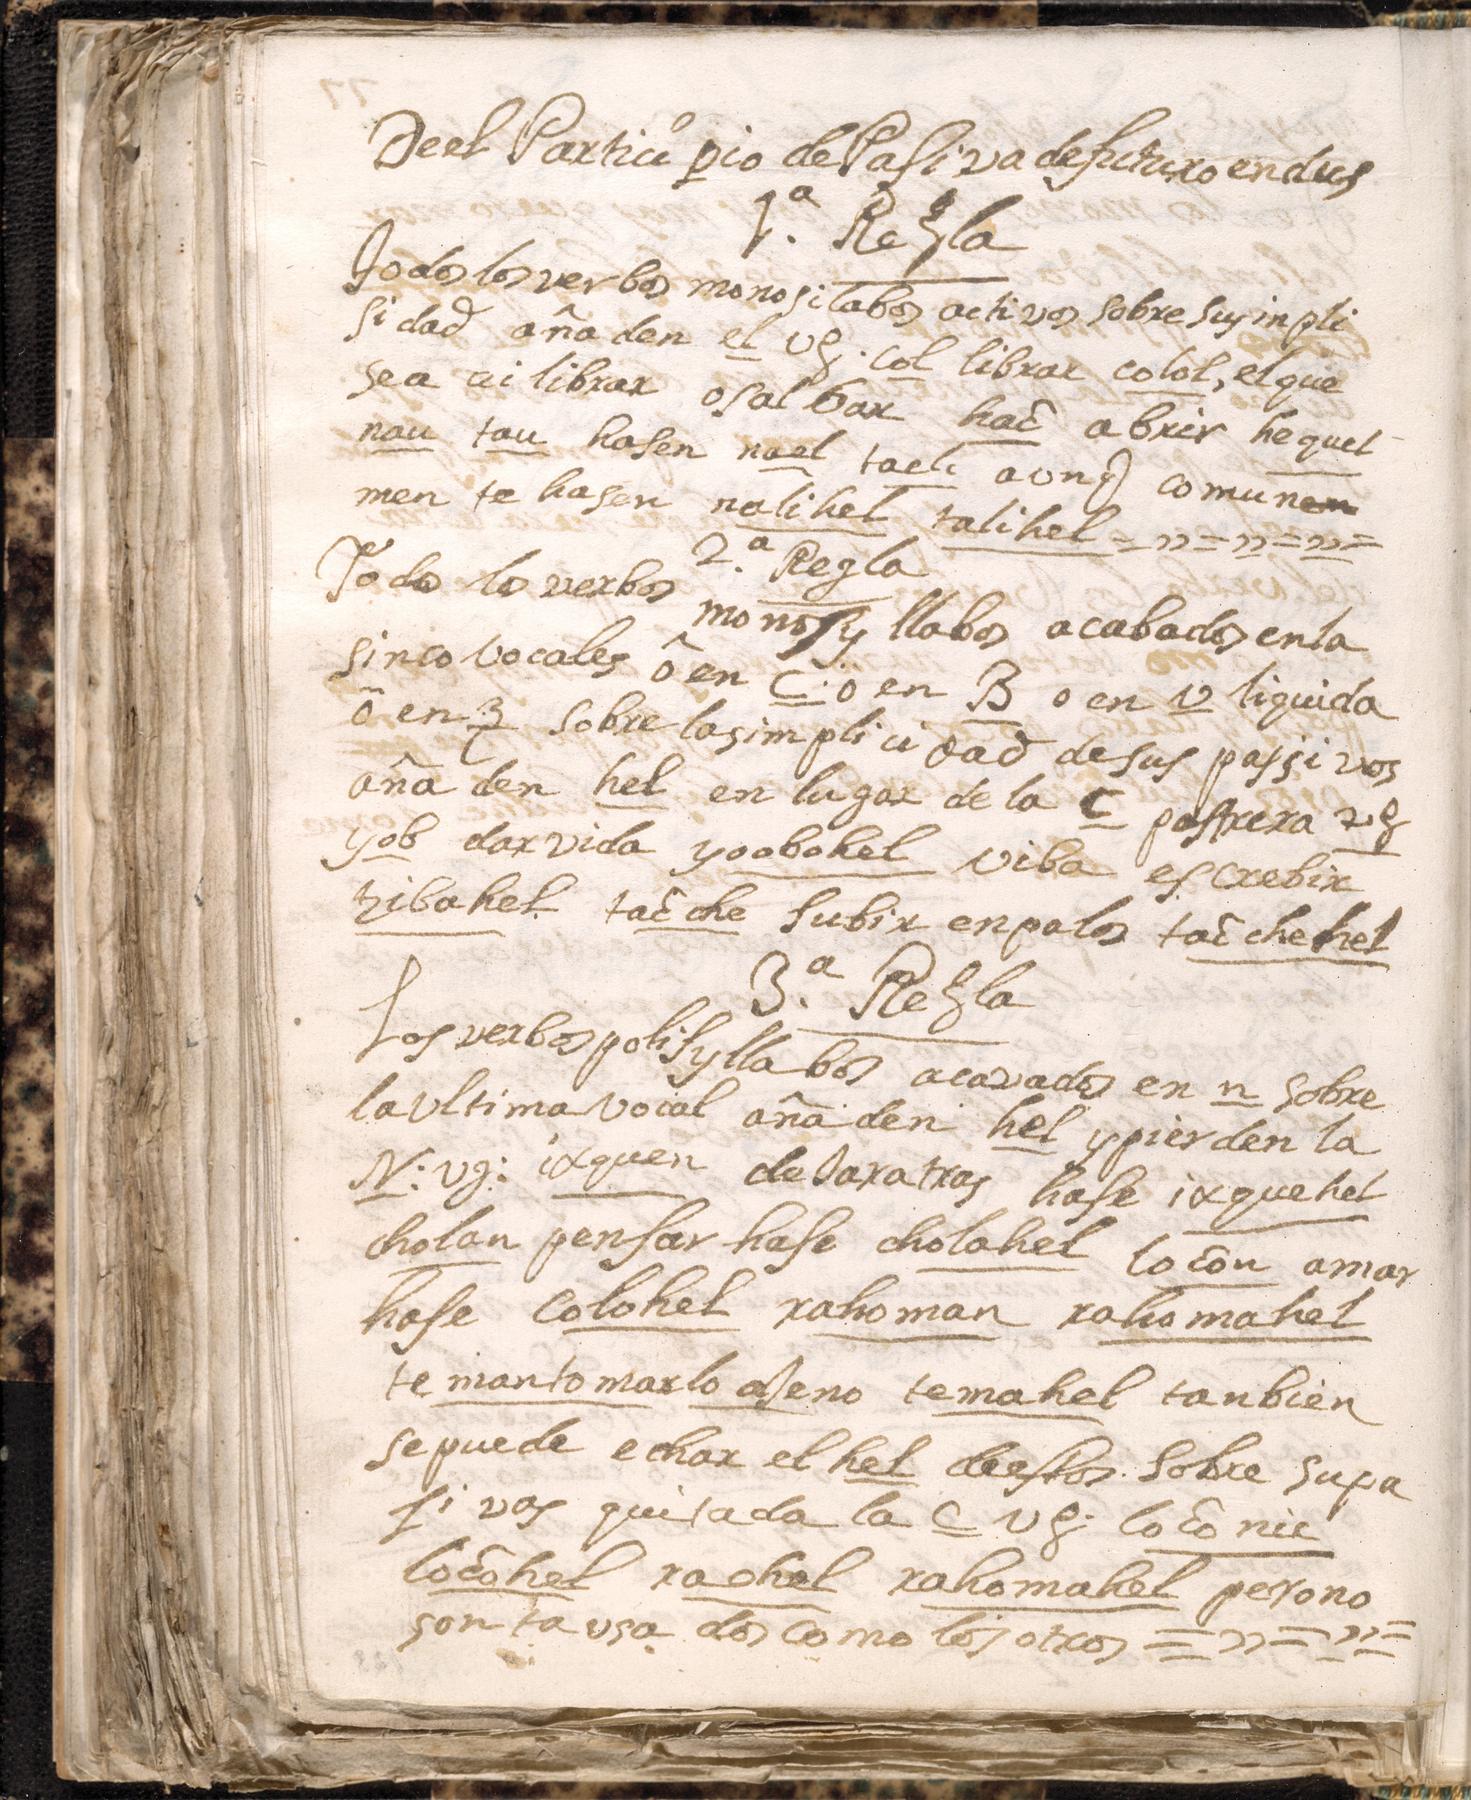 De el Participio de Pasiva de futuro en dus
1.ª Regla
Todos los verbos monosilabos activos sobre su inpli
sidad añaden el vg. col librar colol, el que
sea ai librar o salbar hac̃ abrir hequel
nau tau hasen nael taeli aunq comun
mente hasen nalihel talihel = „ = „ = „ =
2.ª Regla
Todo los verbos monosyllabos acabados en la
sinco vocales ô en C. o en B o en v liquida
õ en 3 sobre la simplicidad de sus passivos
añaden hel en lugar de la C postrera vg
yob dar vida yoobohel viba escrebir
tzibahel tac̃che subir en palos tac̃chehel
3.ª Regla
Los verbos polisyllabos acavados en n sobre
la vltima vocal añaden hel y pierden la
N: vg: ixquen dexar atras hase ixquehel
cholan pensar hase cholahel loc̃on amar
hase colohel rahoman rahomahel
teman tomar lo ageno temahel tanbien
se puede echar el hel de estos sobre su pa
sivos quitada la C vg. loc̃onic
loc̃ohel raohel rahomahel pero no
son ta vsados como los otros = „ = „ =